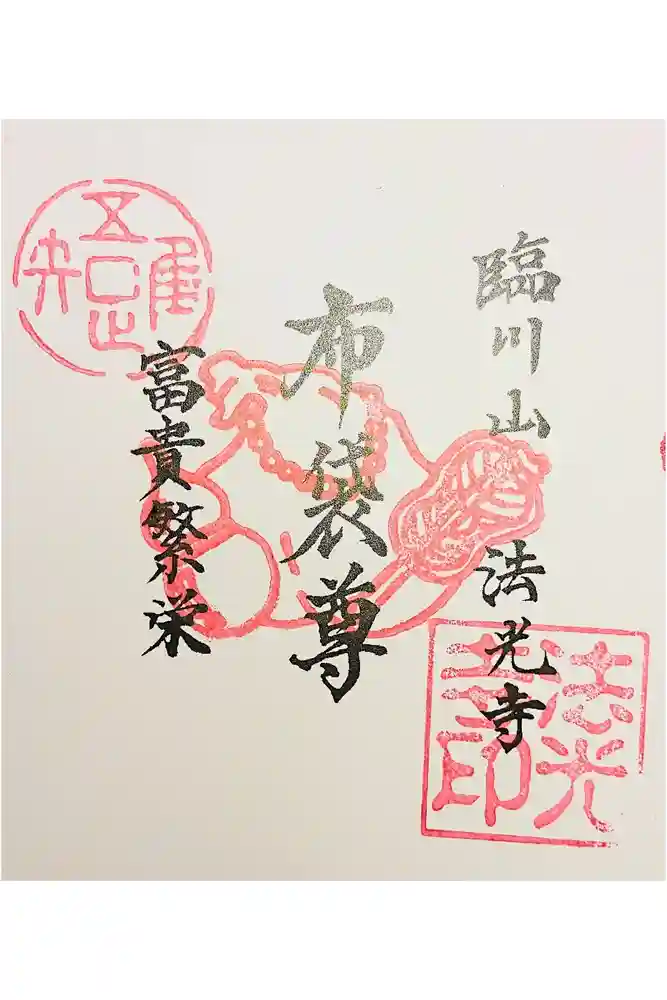 臨川山 法光寺
布袋尊
富貴繁栄
吾唯足知
法光
寺印